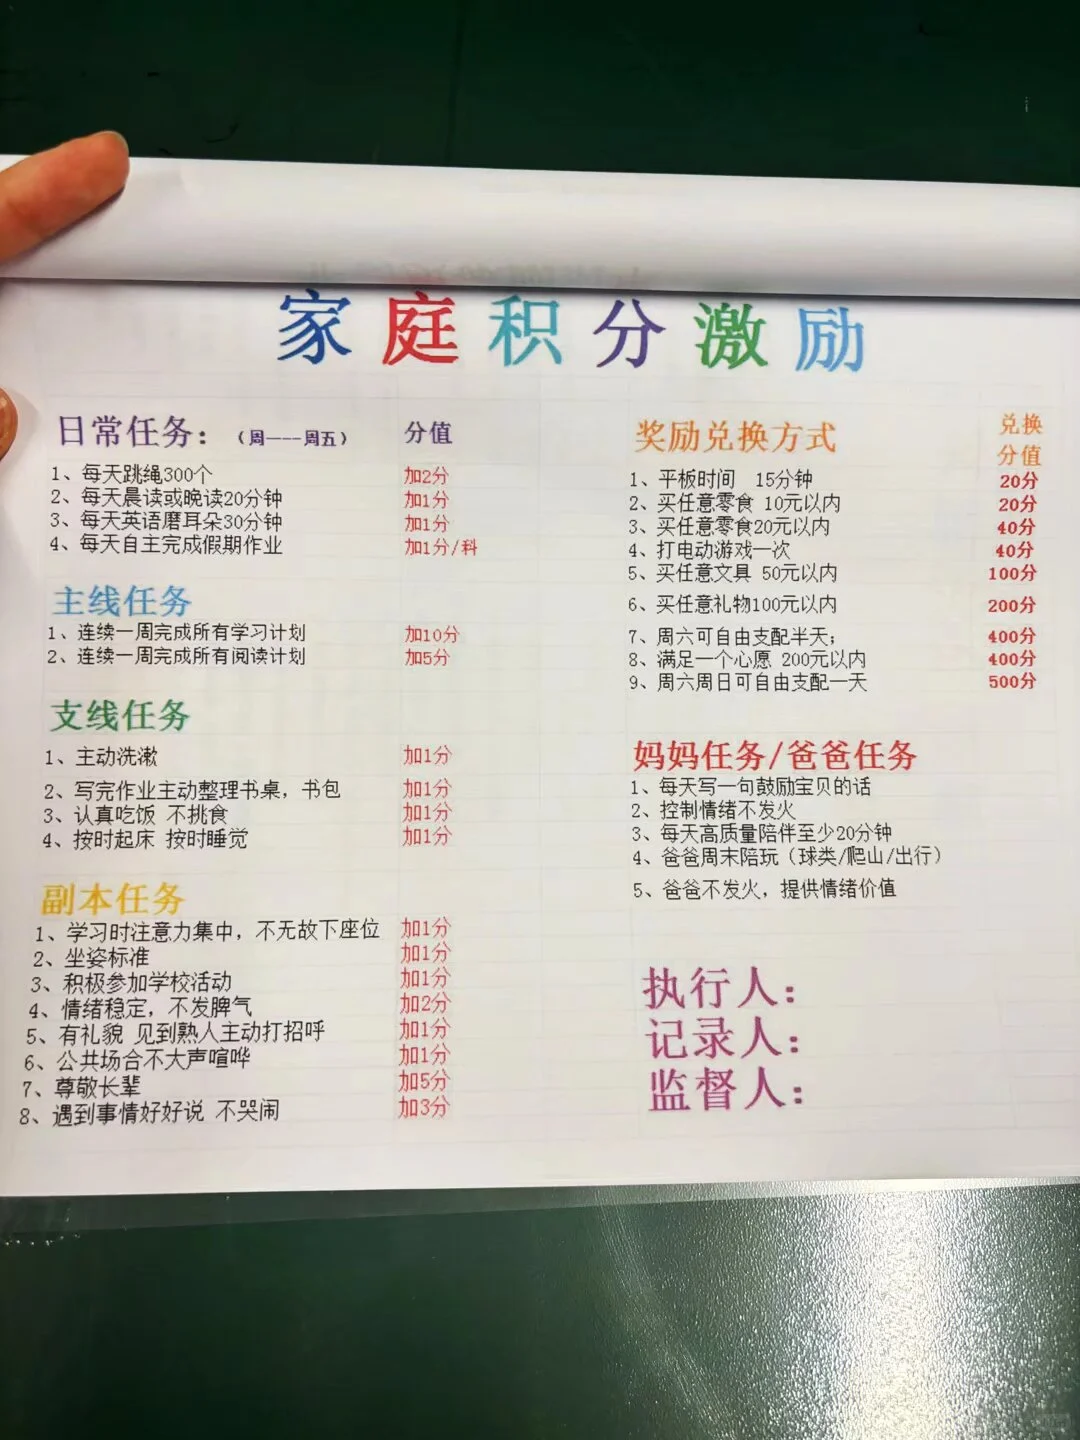 家庭积分激励
日常任务：（周一---周五） 分值
1、每天跳绳300个 加2分
2、每天晨读或晚读20分钟 加1分
3、每天英语磨耳朵30分钟 加1分
4、每天自主完成假期作业 加1分/科
主线任务
1、连续一周完成所有学习计划 加10分
2、连续一周完成所有阅读计划 加5分
支线任务
1、主动洗漱 加1分
2、写完作业主动整理书桌，书包 加1分
3、认真吃饭 不挑食 加1分
4、按时起床 按时睡觉 加1分
副本任务
1、学习时注意力集中，不无故下座位 加1分
2、坐姿标准 加1分
3、积极参加学校活动 加1分
4、情绪稳定，不发脾气 加2分
5、有礼貌 见到熟人主动打招呼 加1分
6、公共场合不大声喧哗 加1分
7、尊敬长辈 加5分
8、遇到事情好好说 不哭闹 加3分
奖励兑换方式 兑换分值
1、平板时间 15分钟 20分
2、买任意零食 10元以内 20分
3、买任意零食20元以内 40分
4、打电动游戏一次 40分
5、买任意文具 50元以内 100分
6、买任意礼物100元以内 200分
7、周六可自由支配半天； 400分
8、满足一个心愿 200元以内 400分
9、周六周日可自由支配一天 500分
妈妈任务/爸爸任务
1、每天写一句鼓励宝贝的话
2、控制情绪不发火
3、每天高质量陪伴至少20分钟
4、爸爸周末陪玩（球类/爬山/出行）
5、爸爸不发火，提供情绪价值
执行人：
记录人：
监督人：